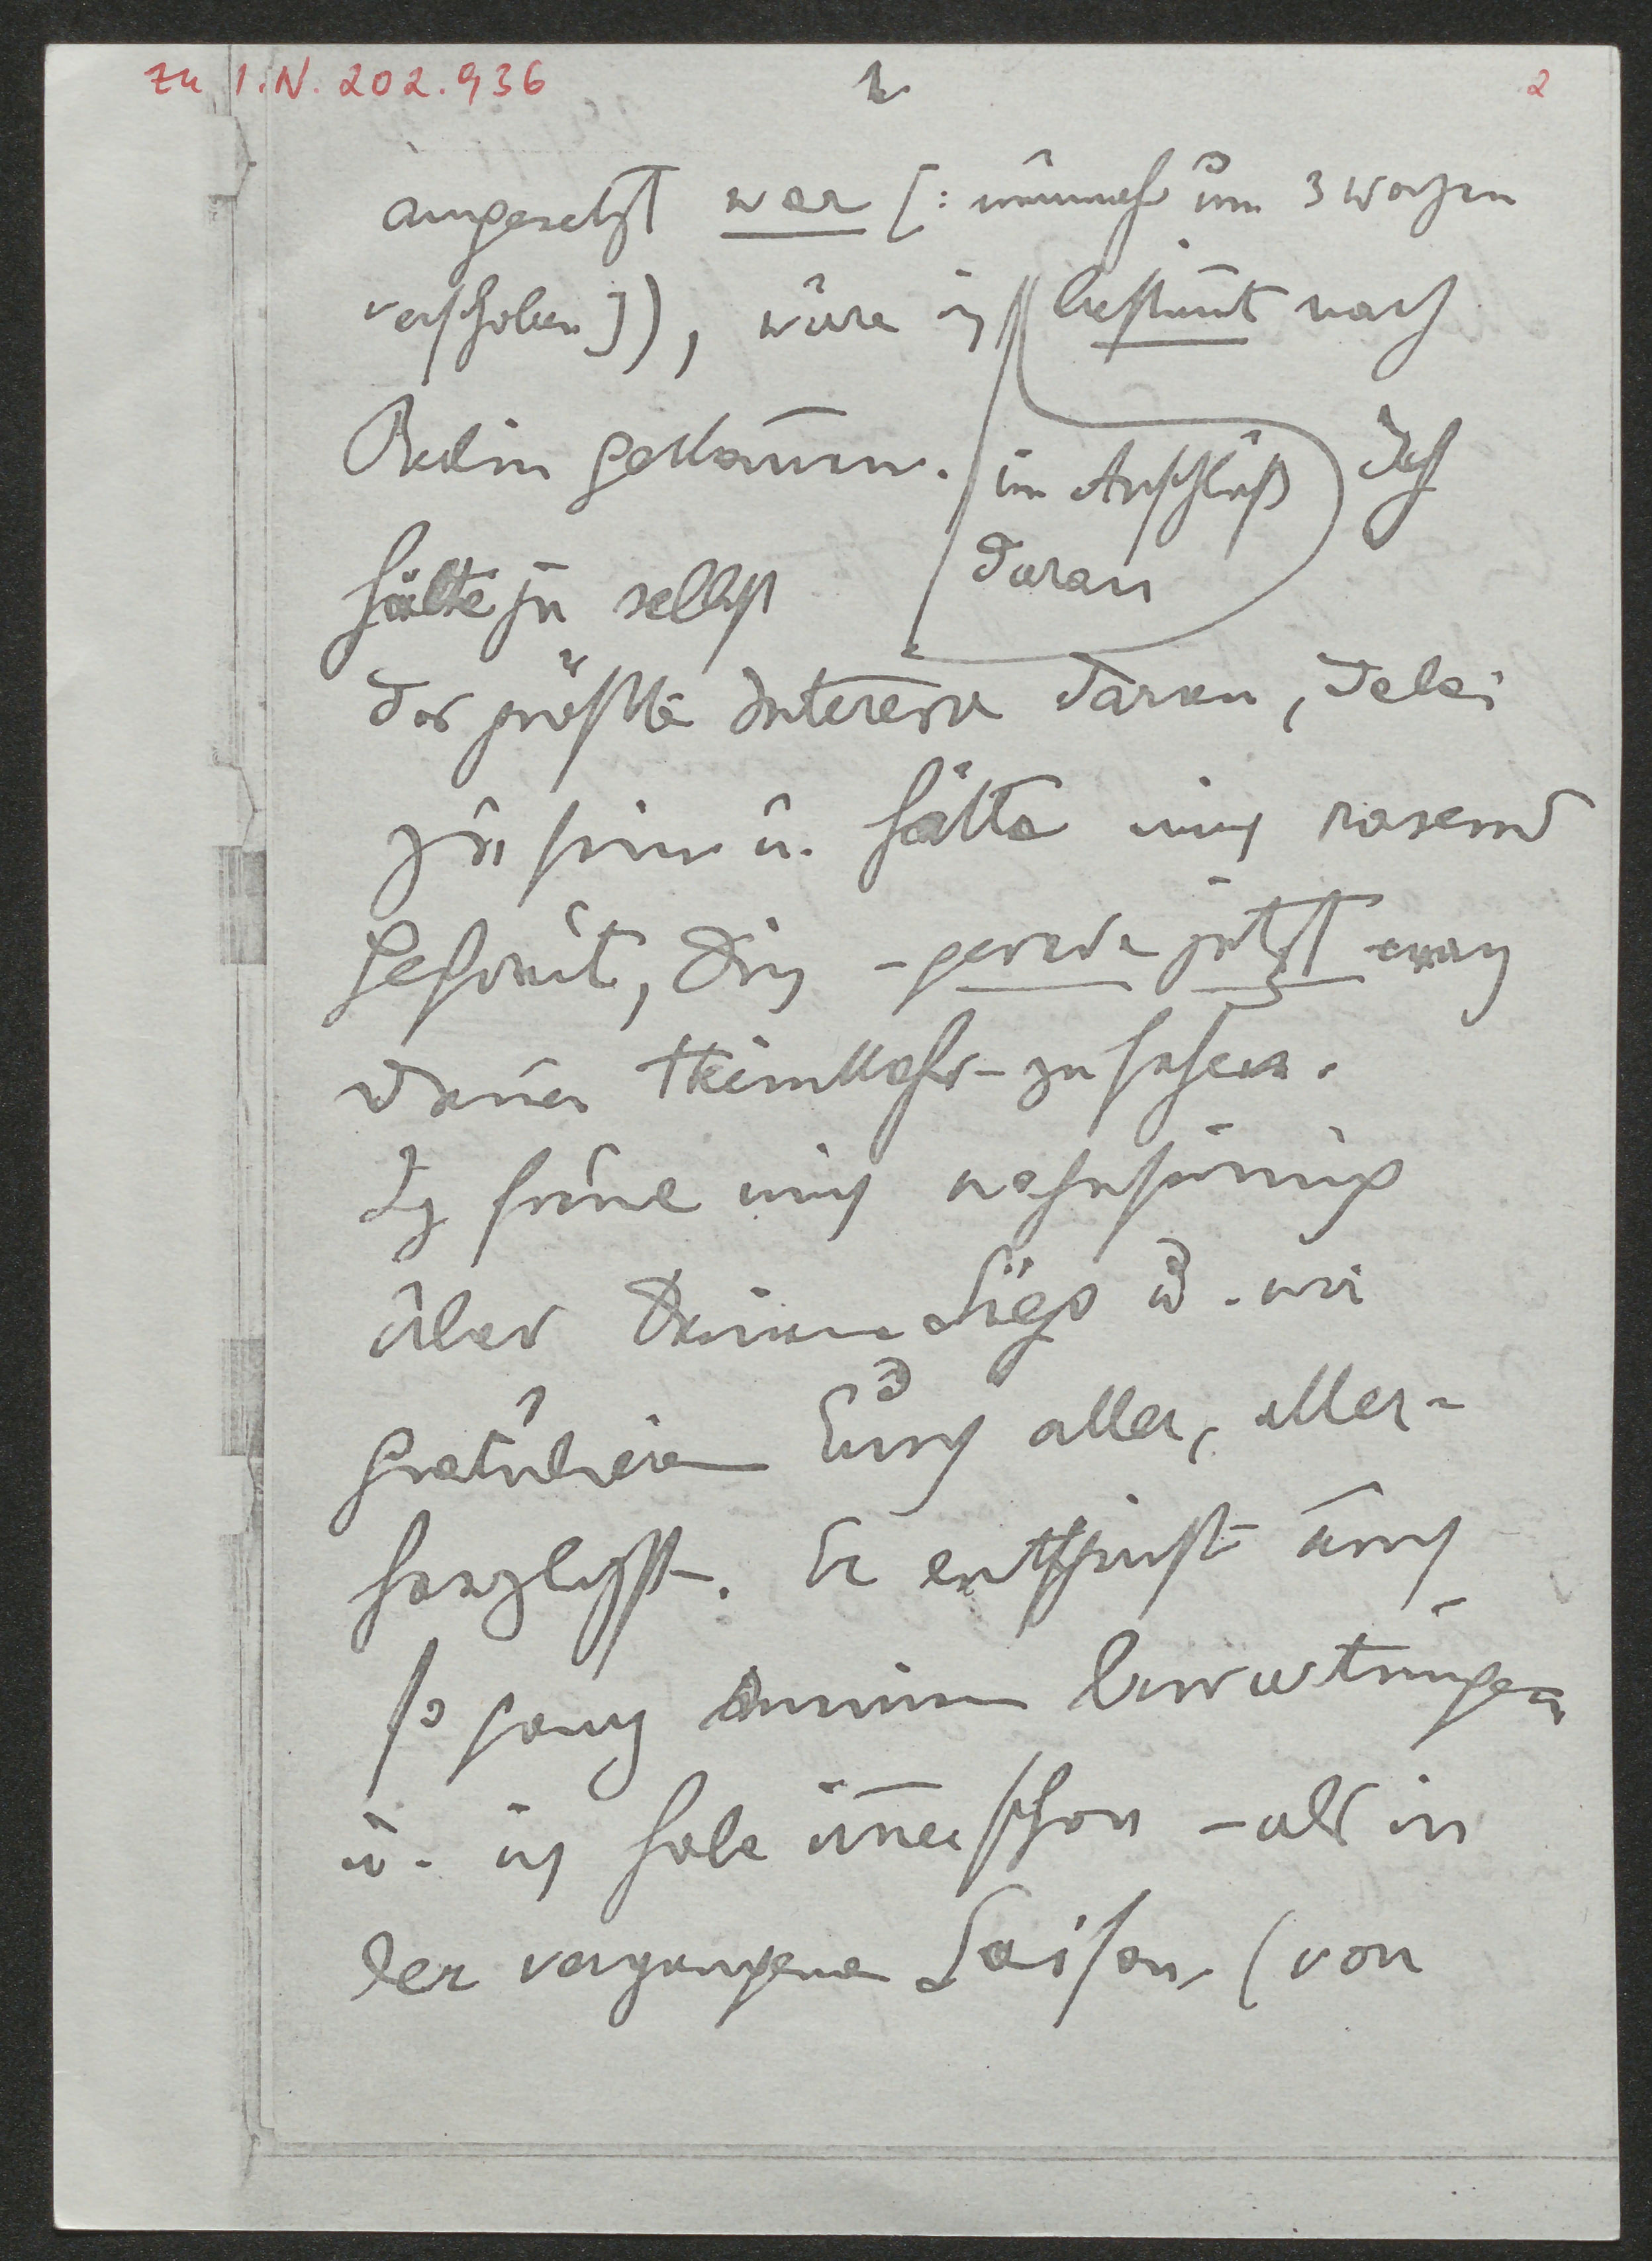 zu I.N. 202.936
2
angesetzt war [: nunmehr um 3 Wochen
verschoben]), wäre ich bestimt nach
Berlin gekomen. Ich
im Anschluß
daran
hätte ja selbst
das größte Interesse daran, dabei
zu sein u. hätte mich rasend
gefreut, Dich – gerade jetzt nach
Deiner Heimkehr – zu sehen.
Ich freue mich wahnsinnig
über Deinen Sieg u. wir
gratulieren Euch aller, aller-
herzlichst. Er entspricht auch
so ganz meinen Erwartungen
u. ich habe imer schon – als in
der vergangenen Saison (von